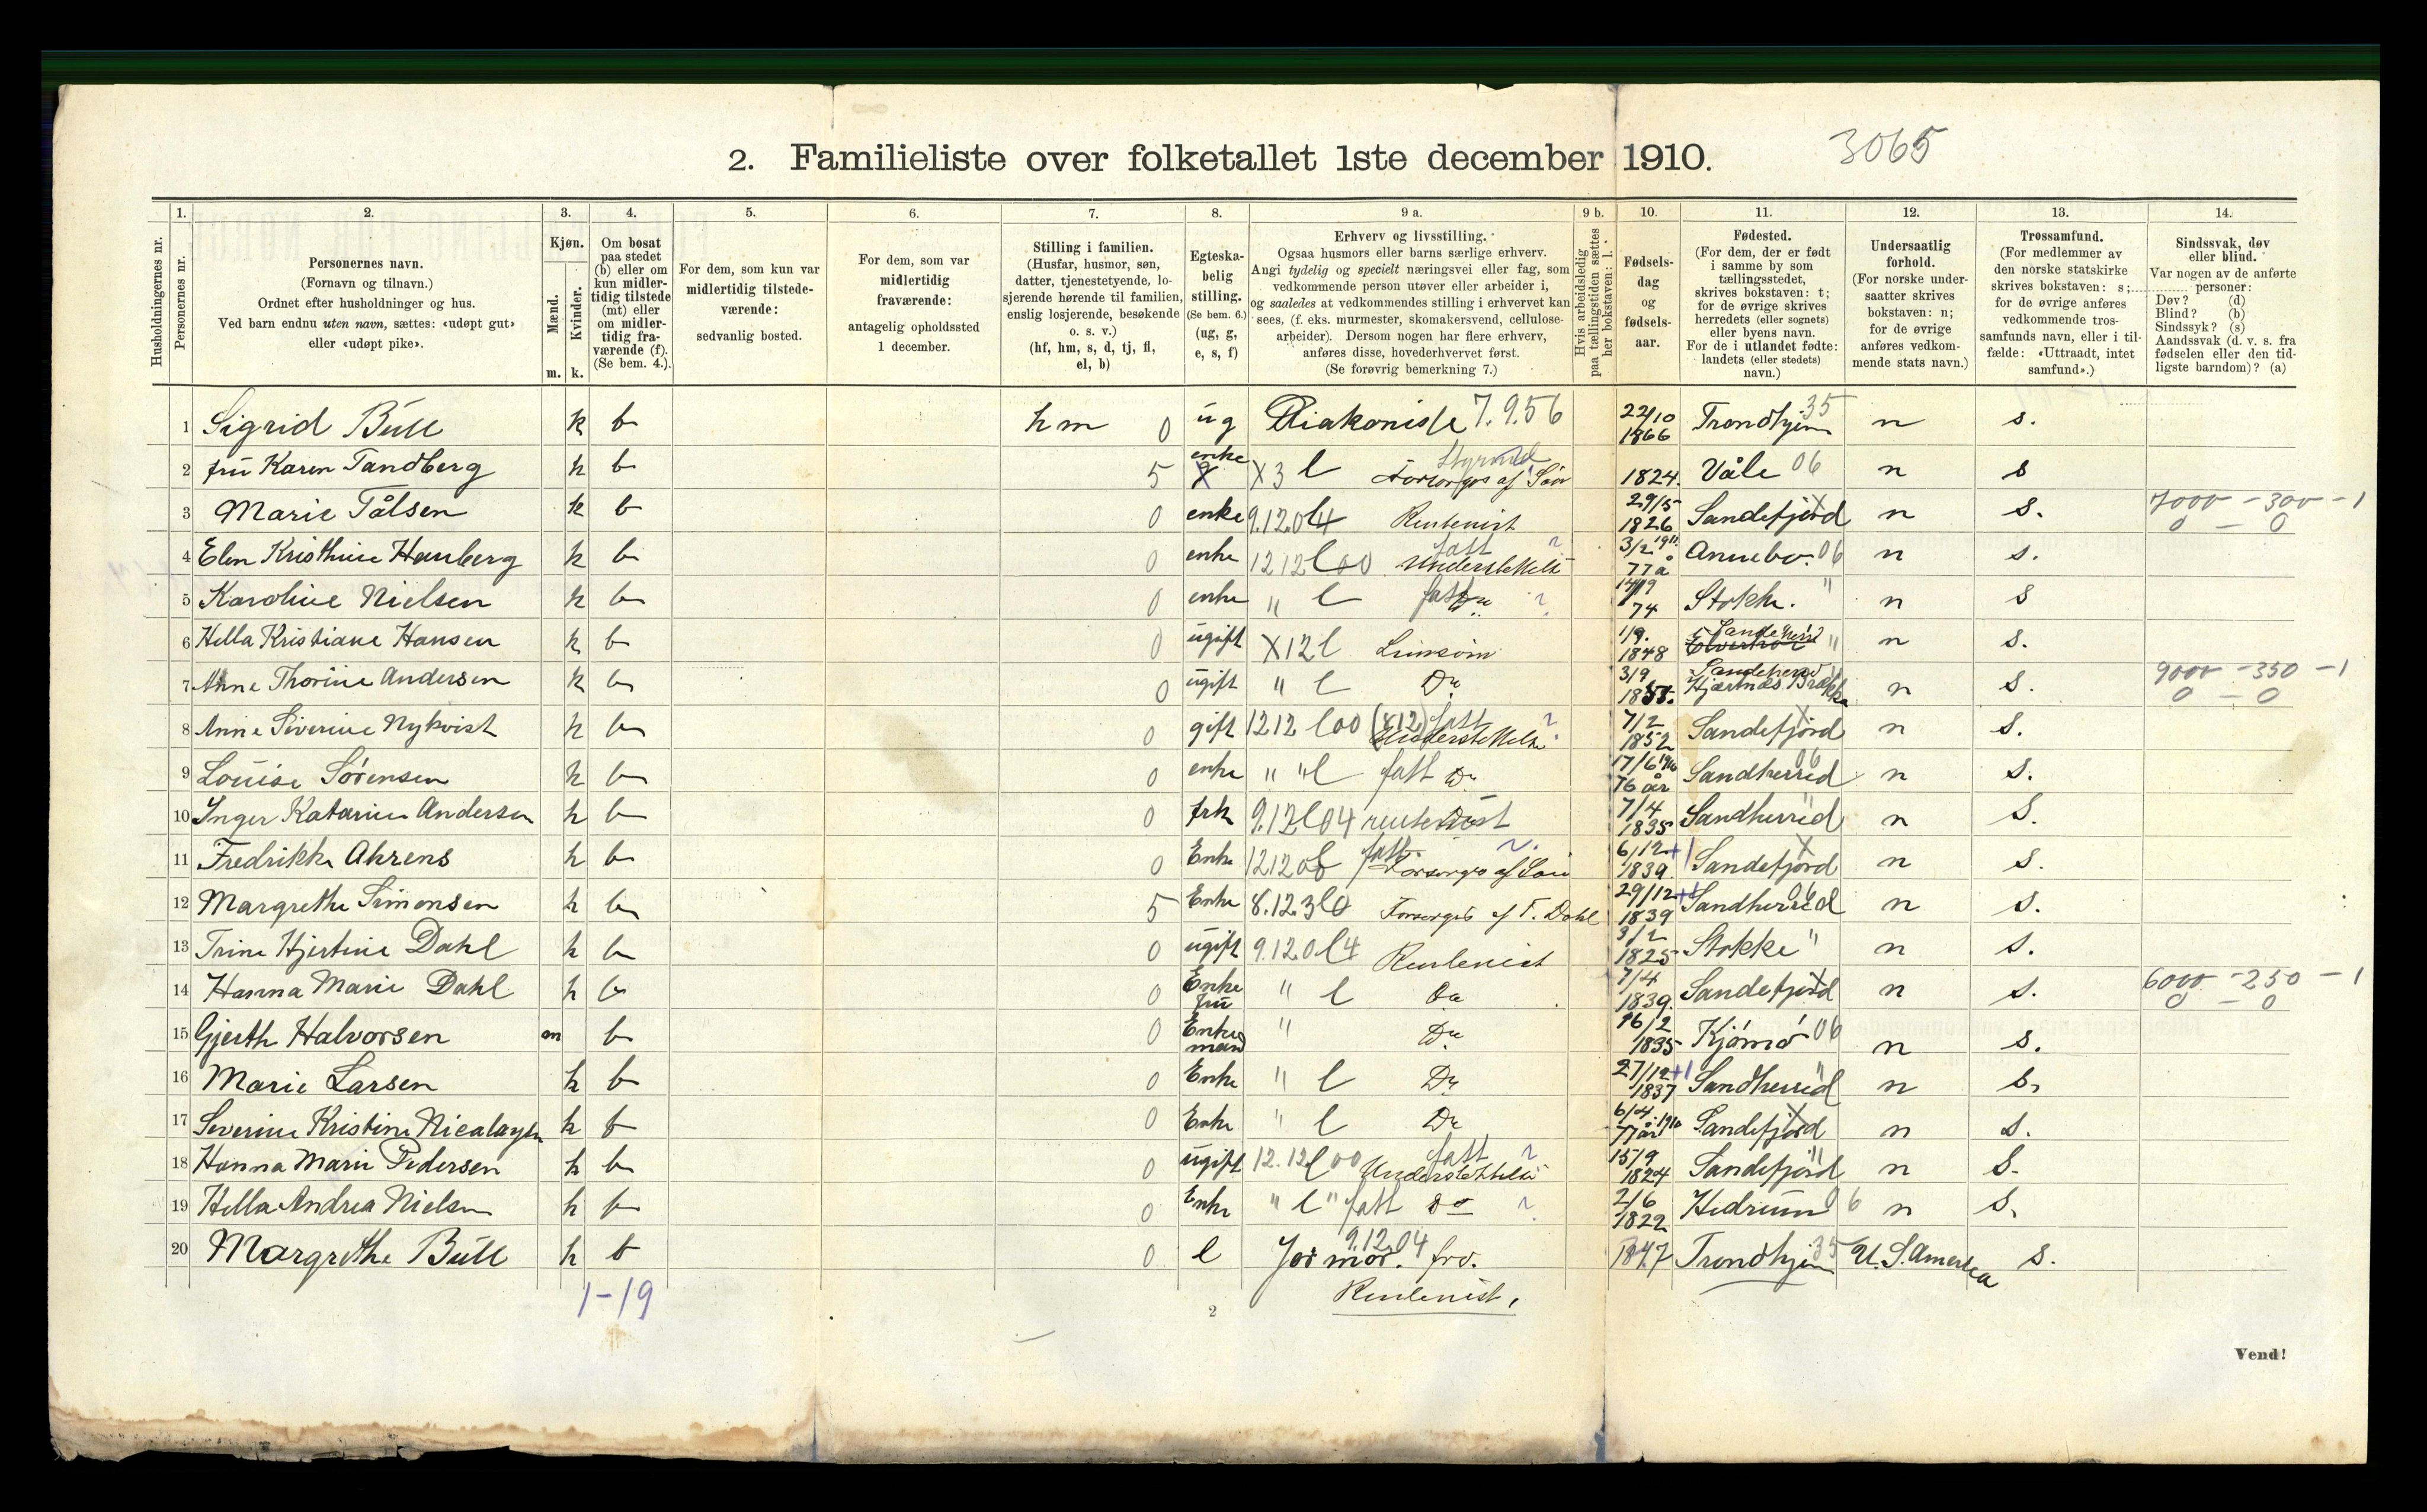 2. Familieliste over folketallet 1ste december 1910. 3065
1. 2. 3. 4. 5. 6. 7. 8. 9 a. 9 b. 10. 11. 12. 13. 14.
Husholdningernes nr.
Personernes nr.
Personernes navn.
(Fornavn og tilnavn.)
Ordnet efter husholdninger og hus.
Ved barn endnu uten navn, sættes: «udøpt gut»
eller «udøpt pike».
Kjøn.
Mænd.
Kvinder.
m. k.
Om bosat
paa stedet
(b) eller om
kun midler-
tidig tilstede
(mt) eller
om midler-
tidig fra-
værende (f).
(Se bem. 4.)
For dem, som kun var
midlertidig tilstede-
værende:
sedvanlig bosted.
For dem, som var
midlertidig
fraværende:
antagelig opholdssted
1 december.
Stilling i familien.
(Husfar, husmor, søn,
datter, tjenestetyende, lo-
sjerende hørende til familien,
enslig losjerende, besøkende
o. s. v.)
(hf, hm, s, d, tj, fl,
el, b)
Egteska-
belig
stilling.
(Se bem. 6.)
(ug, g,
e, s, f)
Erhverv og livsstilling.
Ogsaa husmors eller barns særlige erhverv.
Angi tydelig og specielt næringsvei eller fag, som
vedkommende person utøver eller arbeider i,
og saaledes at vedkommendes stilling i erhvervet kan
sees, (f. eks. murmester, skomakersvend, cellulose-
arbeider). Dersom nogen har flere erhverv,
anføres disse, hovederhvervet først.
(Se forøvrig bemerkning 7.)
Hvis arbeidsledig
paa tællingstiden sættes
her bokstaven: l.
Fødsels-
dag
og
fødsels-
aar.
Fødested.
(For dem, der er født
i samme by som
tællingsstedet,
skrives bokstaven: t;
for de øvrige skrives
herredets (eller sognets)
eller byens navn.
For de i utlandet fødte:
landets (eller stedets)
navn.)
Undersaatlig
forhold.
(For norske under-
saatter skrives
bokstaven: n;
for de øvrige
anføres vedkom-
mende stats navn.)
Trossamfund.
(For medlemmer av
den norske statskirke
skrives bokstaven: s;
for de øvrige anføres
vedkommende tros-
samfunds navn, eller i til-
fælde: «Uttraadt, intet
samfund».)
Sindssvak, døv
eller blind.
Var nogen av de anførte
personer:
Døv? (d)
Blind? (b)
Sindssyk? (s)
Aandssvak (d. v. s. fra
fødselen eller den tid-
ligste barndom)? (a)
1 Sigrid Büll k b hm 0 ug Diakonisse 7.9.56 22/10 1866 Trondhjem 35 n s.
2 fru Karen Tandberg k b 5 enke X3 l Forsørges af Søn 1824. Våle 06 n s
3 Marie Tålsen k b 0 enke 9.12.04 l Rentenist 29/5 1826 Sandefjord n s. 7000 - 300 - 1 0 - 0
4 Elen Kristhine Hauberg k b 0 enke 1212 l 00 fatt Understøttelse 3/2 1911 77 å Annebo. 06 n s.
5 Karoline Nielsen k b 0 enke " l fatt Do 14/9 74 Stokke. " n s
6 Hella Kristiane Hansen k b 0 ugift X12 l 1/9. 1848 Sandeherred " n s.
7 Anne Thorine Andersen k b 0 ugift " l Do 3/9 Sandeherred Hjertnes n s. 9000 - 350 - 1 0 - 0
8 Anne Siverine Nykvist k b 0 gift 1212 l 00 (812) fatt Understøttelse 7/2 1852 Sandefjord n s.
9 Louise Sørensen k b 0 enke " " l fatt Do 17/6 1910 76 år Sandherred 06 n s.
10 Inger Katarine Andersen k b 0 frk 9.12 l 04 rentenist 7/4 1835 Sandherred " n s.
11 Fredrikke Ahrens k b 0 Enke 1212 fatt Forsørges af Søn 6/12 +1 1839 Sandefjord n s.
12 Margrethe Simonsen k b 5 Enke 8.12.3 l 0 Forsørges af T. Dahl 29/12 +1 1839 Sandherred 06 n s.
13 Trine Hjertine Dahl k b 0 ugift 9.12.0 l 4 Rentenist 3/2 1825 Stokke " n s.
14 Hanna Marie Dahl k b 0 Enke fru " l Do 7/4 1839. Sandefjord n s. 6000 - 250 - 1 0 - 0
15 Gjerth Halvorsen m b 0 Enke mand " Do 16/2 1835 Kjømø 06 n s.
16 Marie Larsen k b 0 Enke " l Do 27/12 +1 1837 Sandherred " n s.
17 Severine Kristine Nicolaysen k b 0 Enke " l Do 6/4 1910 77 år Sandefjord n s.
18 Hanna Marie Pedersen k b 0 ugift 12.12 l 00 fatt Understøttelse 15/9 1824 Sandefjord " n s.
19 Hella Andrea Nielsen k b 0 Enke " l " fatt Do 2/6 1822 Hedrum 06 n s.
20 Margrethe Büll k b 0 e Jormor. frv. 9.12.04 1847 Trondhjem 35 U. S. Amerika s.
Rentenist,
1-19
2
Vend!